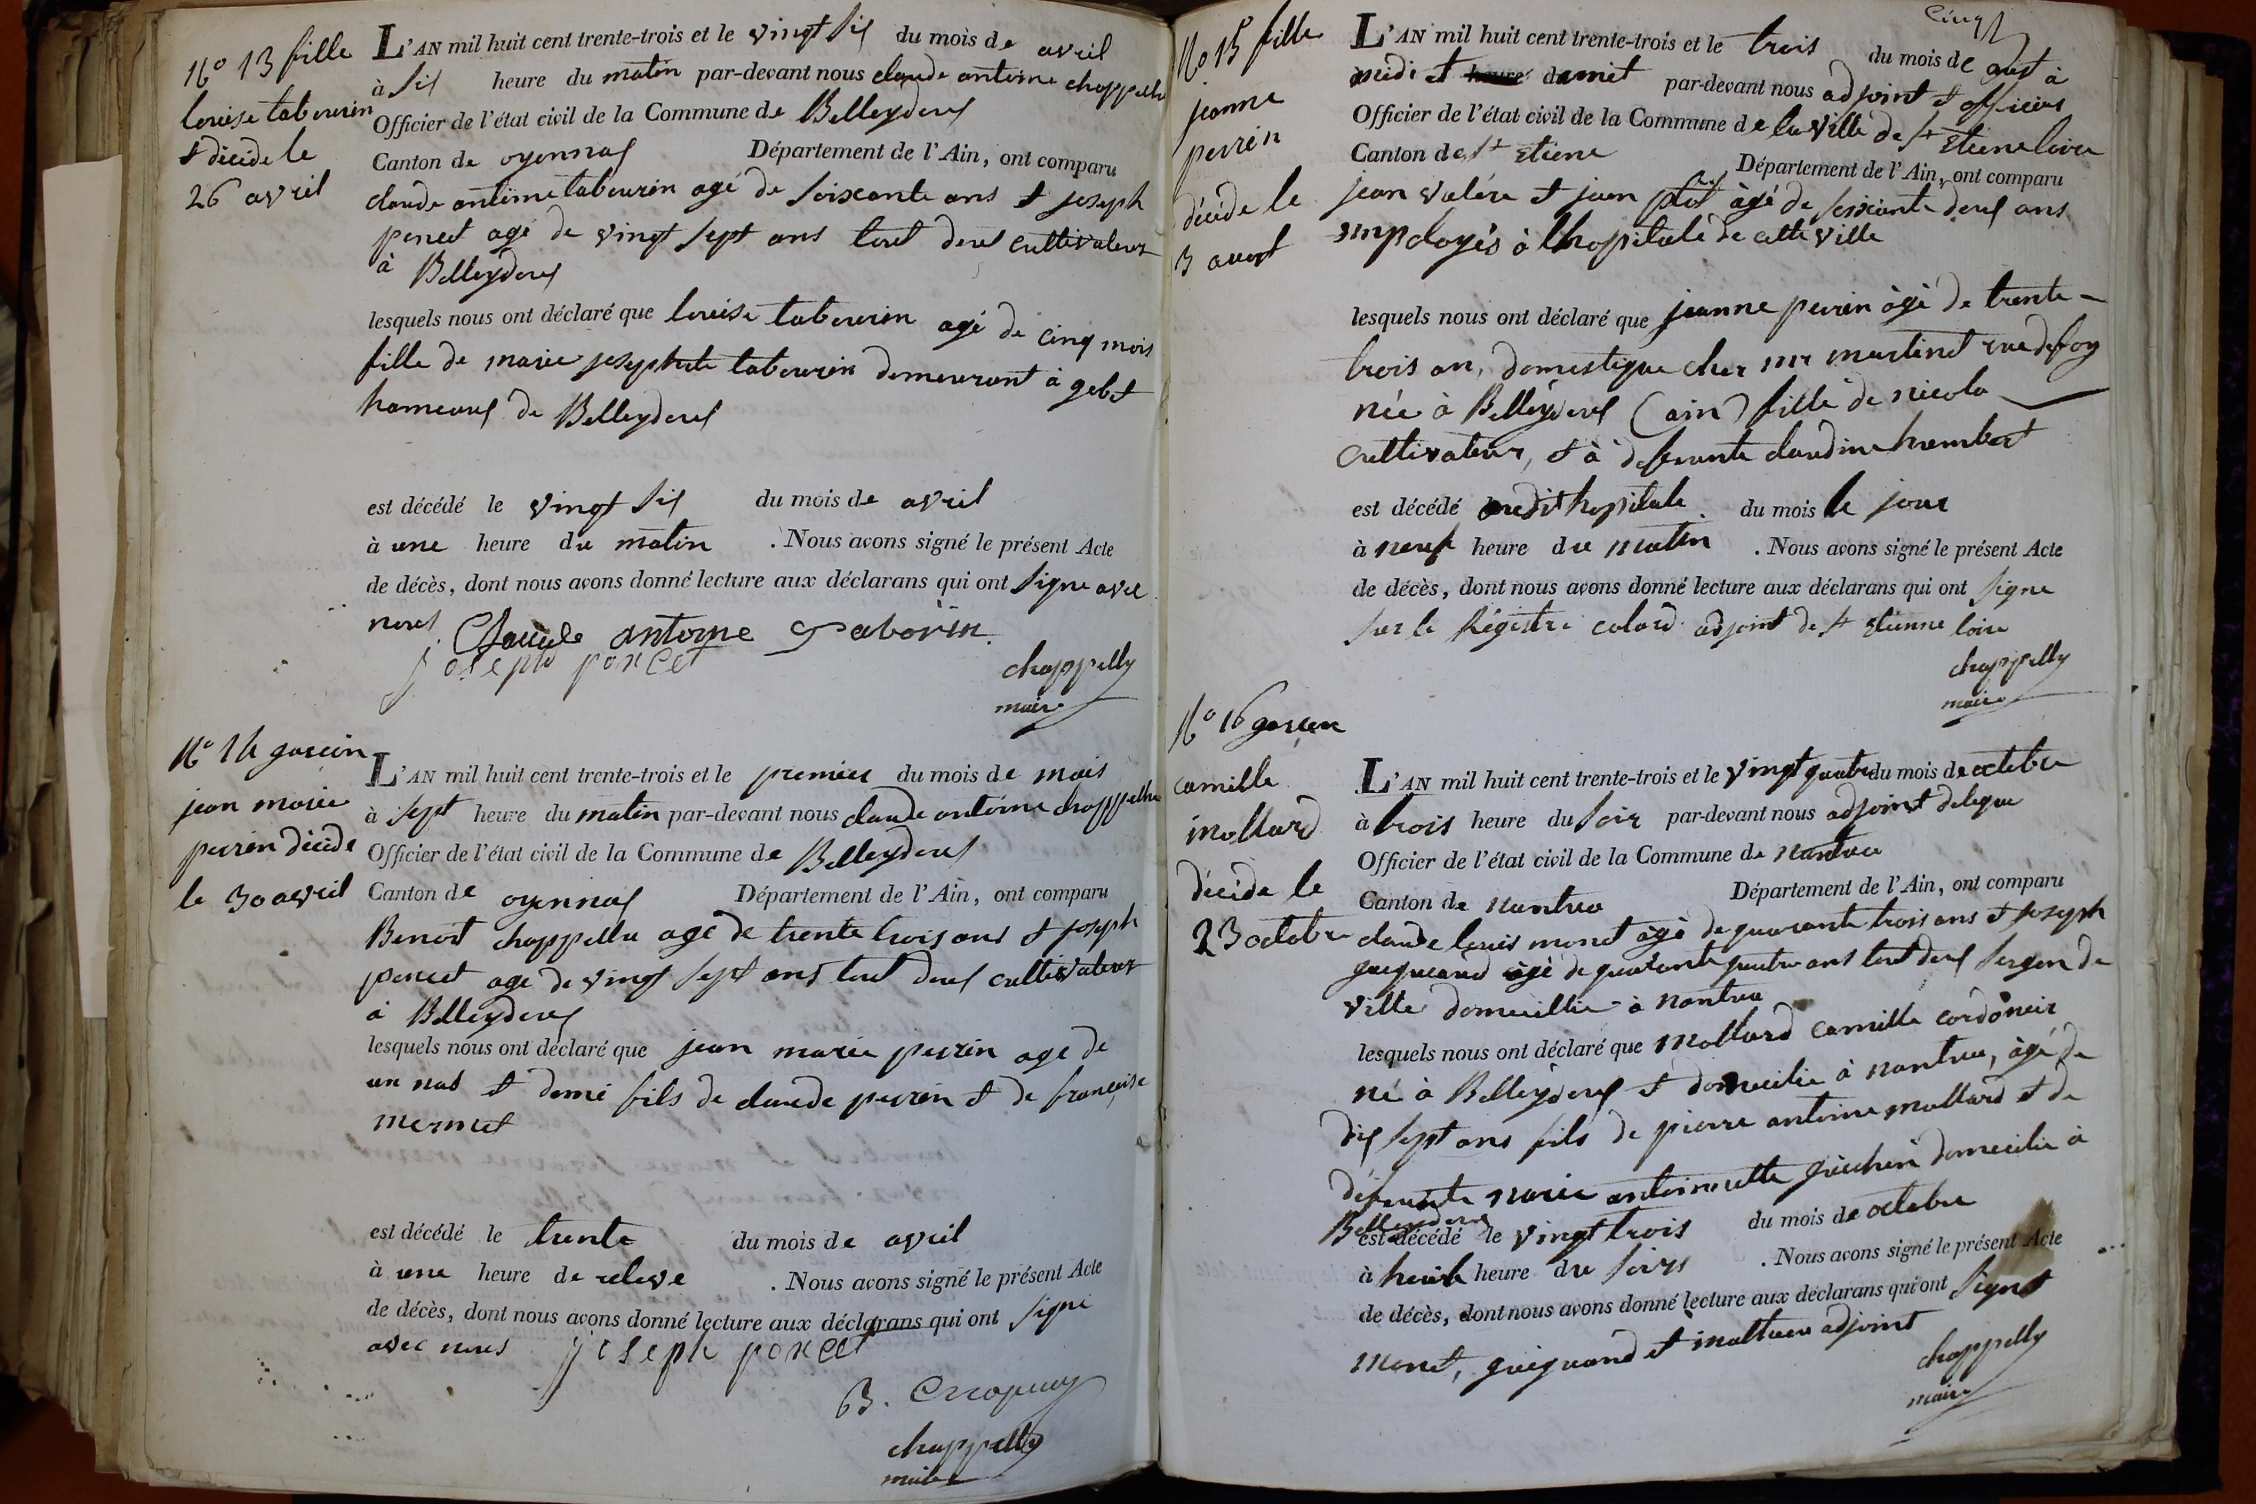 N° 13 fille
louise tabourin
décidé le
26 avril
L'AN mil huit cent trente-trois et le vingt six du mois de avril
à six heure du matin par-devant nous claude antoine chappellu
Officier de l'état civil de la Commune de Belleydoux
Canton de oyonnax Département de l'Ain, ont comparu
claude antoine tabourin agé de soixante ans et joseph
poncet agé de vingt sept ans tout deux cultivateur
à Belleydoux
lesquels nous ont déclaré que louise tabourin agé de cinq mois
fille de marie josephete tabourin demeurant à gobet
hameaux de Belleydoux
est décédé le vingt six du mois de avril
à une heure du matin . Nous avons signé le présent Acte
de décès, dont nous avons donné lecture aux déclarans qui ont signe avec
nous Claude antoine Taborin
joseph poncet
chappelly
maire
N° 14 garcin
jean marie
perrin décidé
le 30 avril
L'AN mil huit cent trente-trois et le premier du mois de mais
à sept heure du matin par-devant nous claude antoine chappellu
Officier de l'état civil de la Commune de Belleydoux
Canton de oyonnax Département de l'Ain, ont comparu
Benoit chappellu agé de trente trois ans et joseph
poncet age de vingt sept ans tout deux cultivateur
à Belleydoux
lesquels nous ont déclaré que jean marie perrin age de
un nas et demi fils de claude perrin et de françoise
mermet
est décédé le trente du mois de avril
à une heure de releve . Nous avons signé le présent Acte
de décès, dont nous avons donné lecture aux déclarans qui ont signé
avec nous joseph poncet
B.
chappelly
maire
cinq
N° 15 fille
jeanne
perrin
décide le
3 auost
L'AN mil huit cent trente-trois et le trois du mois de aust à
midi et par-devant nous adjoint et officier
Officier de l'état civil de la Commune de la ville de St Etiene loire
Canton de St Etiene Département de l'Ain, ont comparu
jean valére et jean agé de soixante deux ans
employés à lhopitale de cette ville
lesquels nous ont déclaré que jeanne perrin àgé de trente-
trois an, domestique chez mr martinet rue de foy
née à Belleydoux (ain) fille de nicola
cultivateur, et à defunte claudine humbert
est décédé audit hopitale du mois le jour
à neuf heure du matin . Nous avons signé le présent Acte
de décès, dont nous avons donné lecture aux déclarans qui ont signe
sur le Régistre colard adjoint de St Etienne loire
chappelly
maire
N° 16 garcon
camille
mollard
décide le
23 octobre
L'AN mil huit cent trente-trois et le vingt quatre du mois de octobre
à trois heure du soir par-devant nous adjoint delegue
Officier de l'état civil de la Commune de nantua
Canton de nantua Département de l'Ain, ont comparu
claude louis monet agé de quarante trois ans et joseph
guiguand agé de quarante quatre ans tout deux sergen de
ville domicillie à nantua
lesquels nous ont déclaré que mollard camille cordoneir
né à Belleydoux et domicilie à nantua, àgé de
dix sept ans fils de pierre antoine mollard et de
défunte marie antoinnette domicilie à
Belleydoux
est décédé le vingt trois du mois de octobre
à heure du soirs . Nous avons signé le présent Acte
de décès, dont nous avons donné lecture aux déclarans qui ont signet
monet, guiguand et adjoint
chappelly
maire